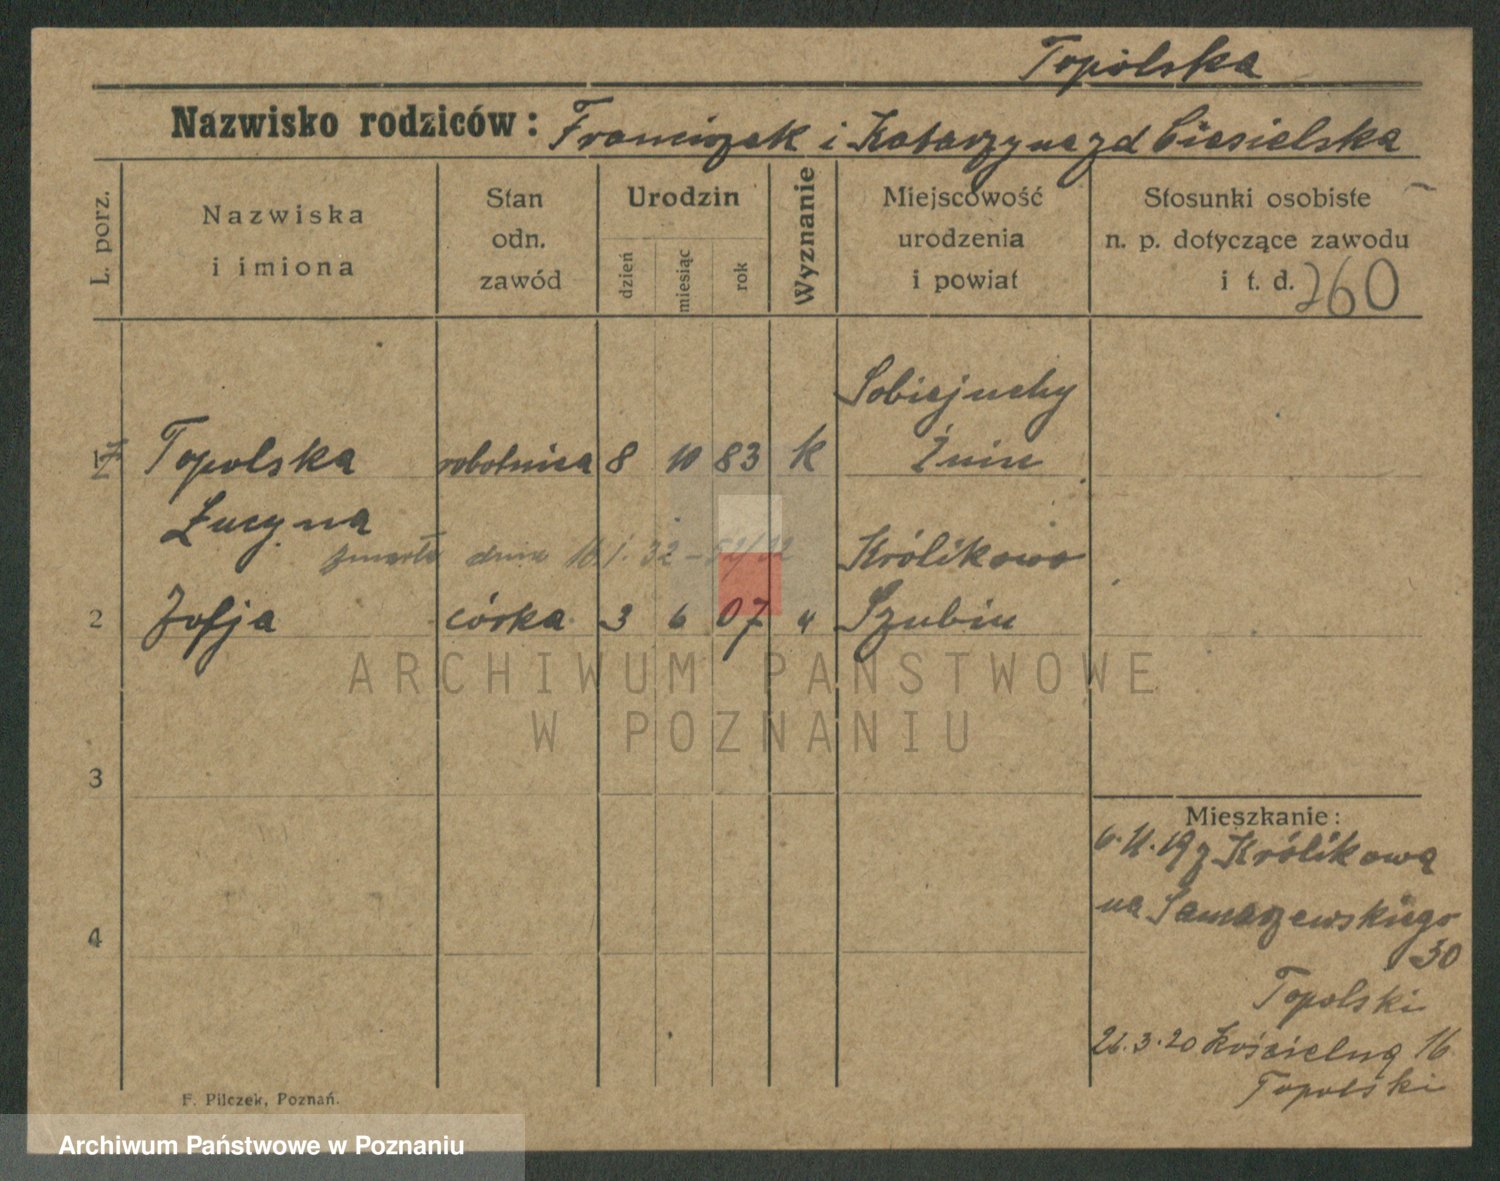 Topolska
Nazwisko rodziców: Franciszek i Katarzyna zd Ciesielska
L. porz.
Nazwiska
i imiona
Stan
odn.
zawód
Urodzin
dzień
miesiąc
rok
Wyznanie
Miejscowość
urodzenia
i powiat
Stosunki osobiste
n. p. dotyczące zawodu
i t. d. 260
Sobiejuchy
1 Topolska robotnica 8 10 83 k Żnin
Łucyna
zmarła dnia
Królikowo
2 Zofja córka 3 6 07 " Szubin
ARCHIWUM PAŃSTWOWE
W POZNANIU
3
4
Mieszkanie:
6.11.19 z Królikowa
na Samarzewskiego
30
Topolski
26.3.20 Kościelna 16
Topolski
F. Pilczek, Poznań.
Archiwum Państwowe w Poznaniu